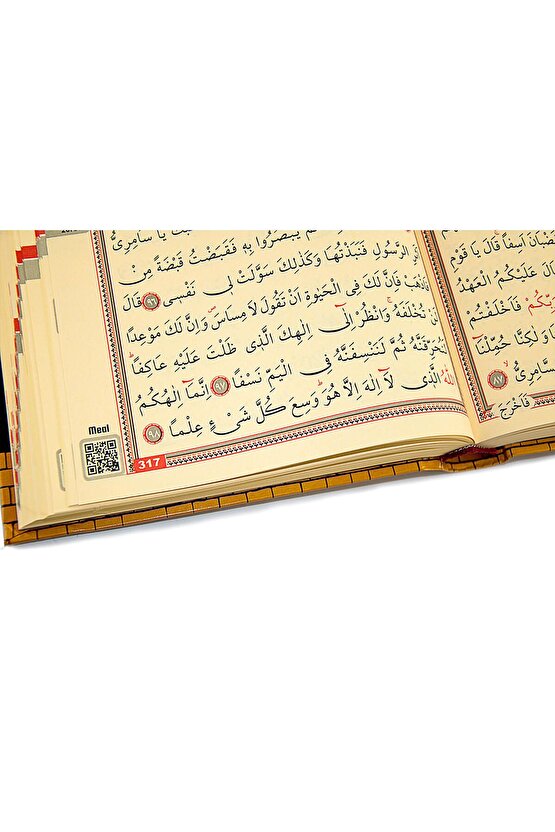 اَسِفًا قَالَ يَا قَوْمِ
عَلَيْكُمُ الْعَهْدُ
فَاَخْلَفْتُمْ
وَلٰكِنَّا حُمِّلْنَٓا
﴿٨٧﴾
فَاَخْرَجَ
يَا سَامِرِىُّ
يَبْصُرُوا بِهِ فَقَبَضْتُ قَبْضَةً مِنْ
الرَّسُولِ فَنَبَذْتُهَا وَكَذٰلِكَ سَوَّلَتْ لِى نَفْسِى ﴿٩٦﴾ قَالَ
فَاذْهَبْ فَاِنَّ لَكَ فِى الْحَيٰوةِ اَنْ تَقُولَ لَا مِسَاسَۖ وَاِنَّ لَكَ مَوْعِدًا
تُخْلَفَهُۚ وَانْظُرْ اِلٰٓى اِلٰهِكَ الَّذِى ظَلْتَ عَلَيْهِ عَاكِفًاۜ
ثُمَّ لَنَنْسِفَنَّهُ فِى الْيَمِّ نَسْفًا ﴿٩٧﴾ اِنَّمَٓا اِلٰهُكُمُ
اللّٰهُ الَّذِى لَٓا اِلٰهَ اِلَّا هُوَۜ وَسِعَ كُلَّ شَىْءٍ عِلْمًا ﴿٩٨﴾
Meal
317